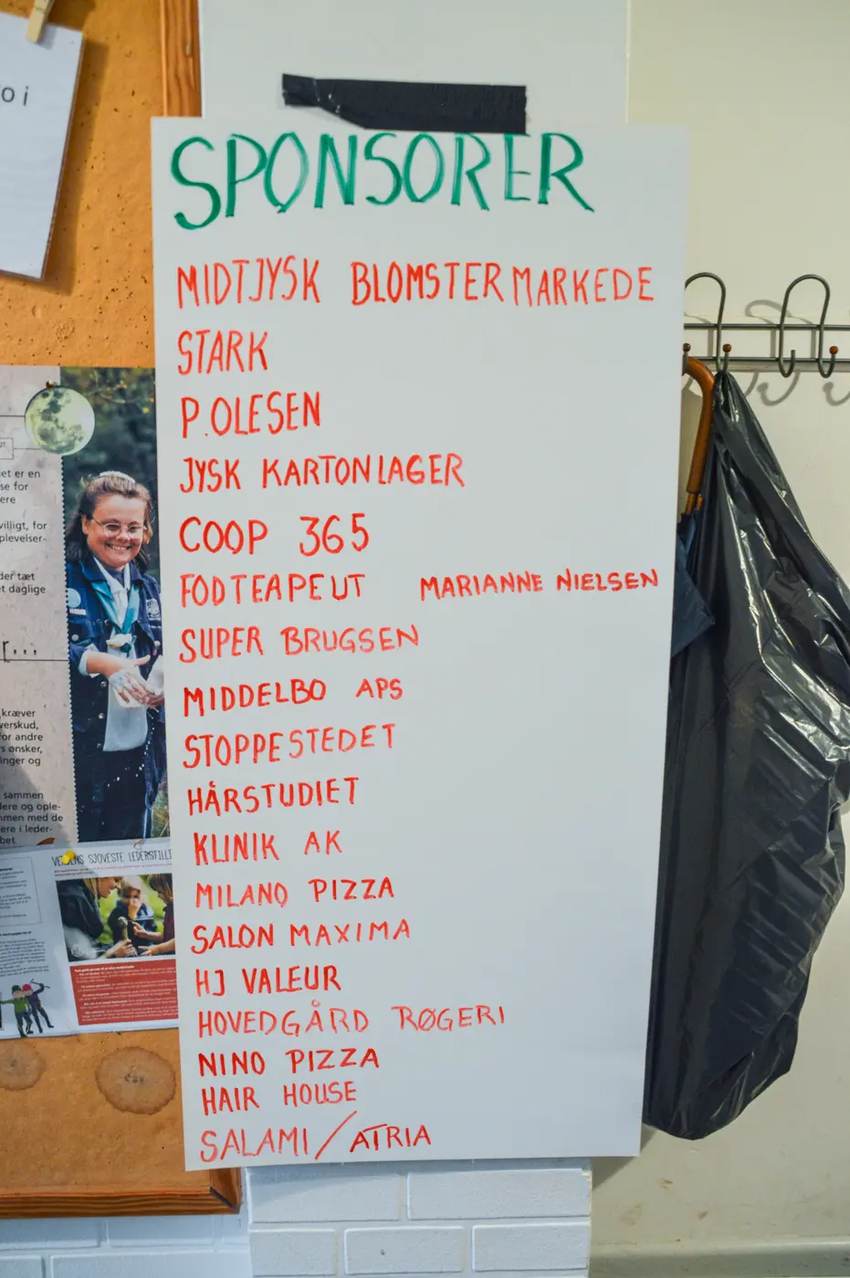 o i
SPONSORER
MIDTJYSK BLOMSTERMARKEDE
STARK
P.OLESEN
JYSK KARTONLAGER
COOP 365
FODTEAPEUT MARIANNE NIELSEN
SUPER BRUGSEN
MIDDELBO APS
STOPPESTEDET
HÅRSTUDIET
KLINIK AK
MILANO PIZZA
SALON MAXIMA
HJ VALEUR
HOVEDGÅRD RØGERI
NINO PIZZA
HAIR HOUSE
SALAMI/ATRIA
et er en
se for
ere
villigt, for
plevelser-
der tæt
t daglige
r...
kræver
verskud,
or andre
s ønsker,
inger og
sammen
lere og ople-
mmen med de
ere i leder-
bet
SJOVESTE LEDERSTILLI